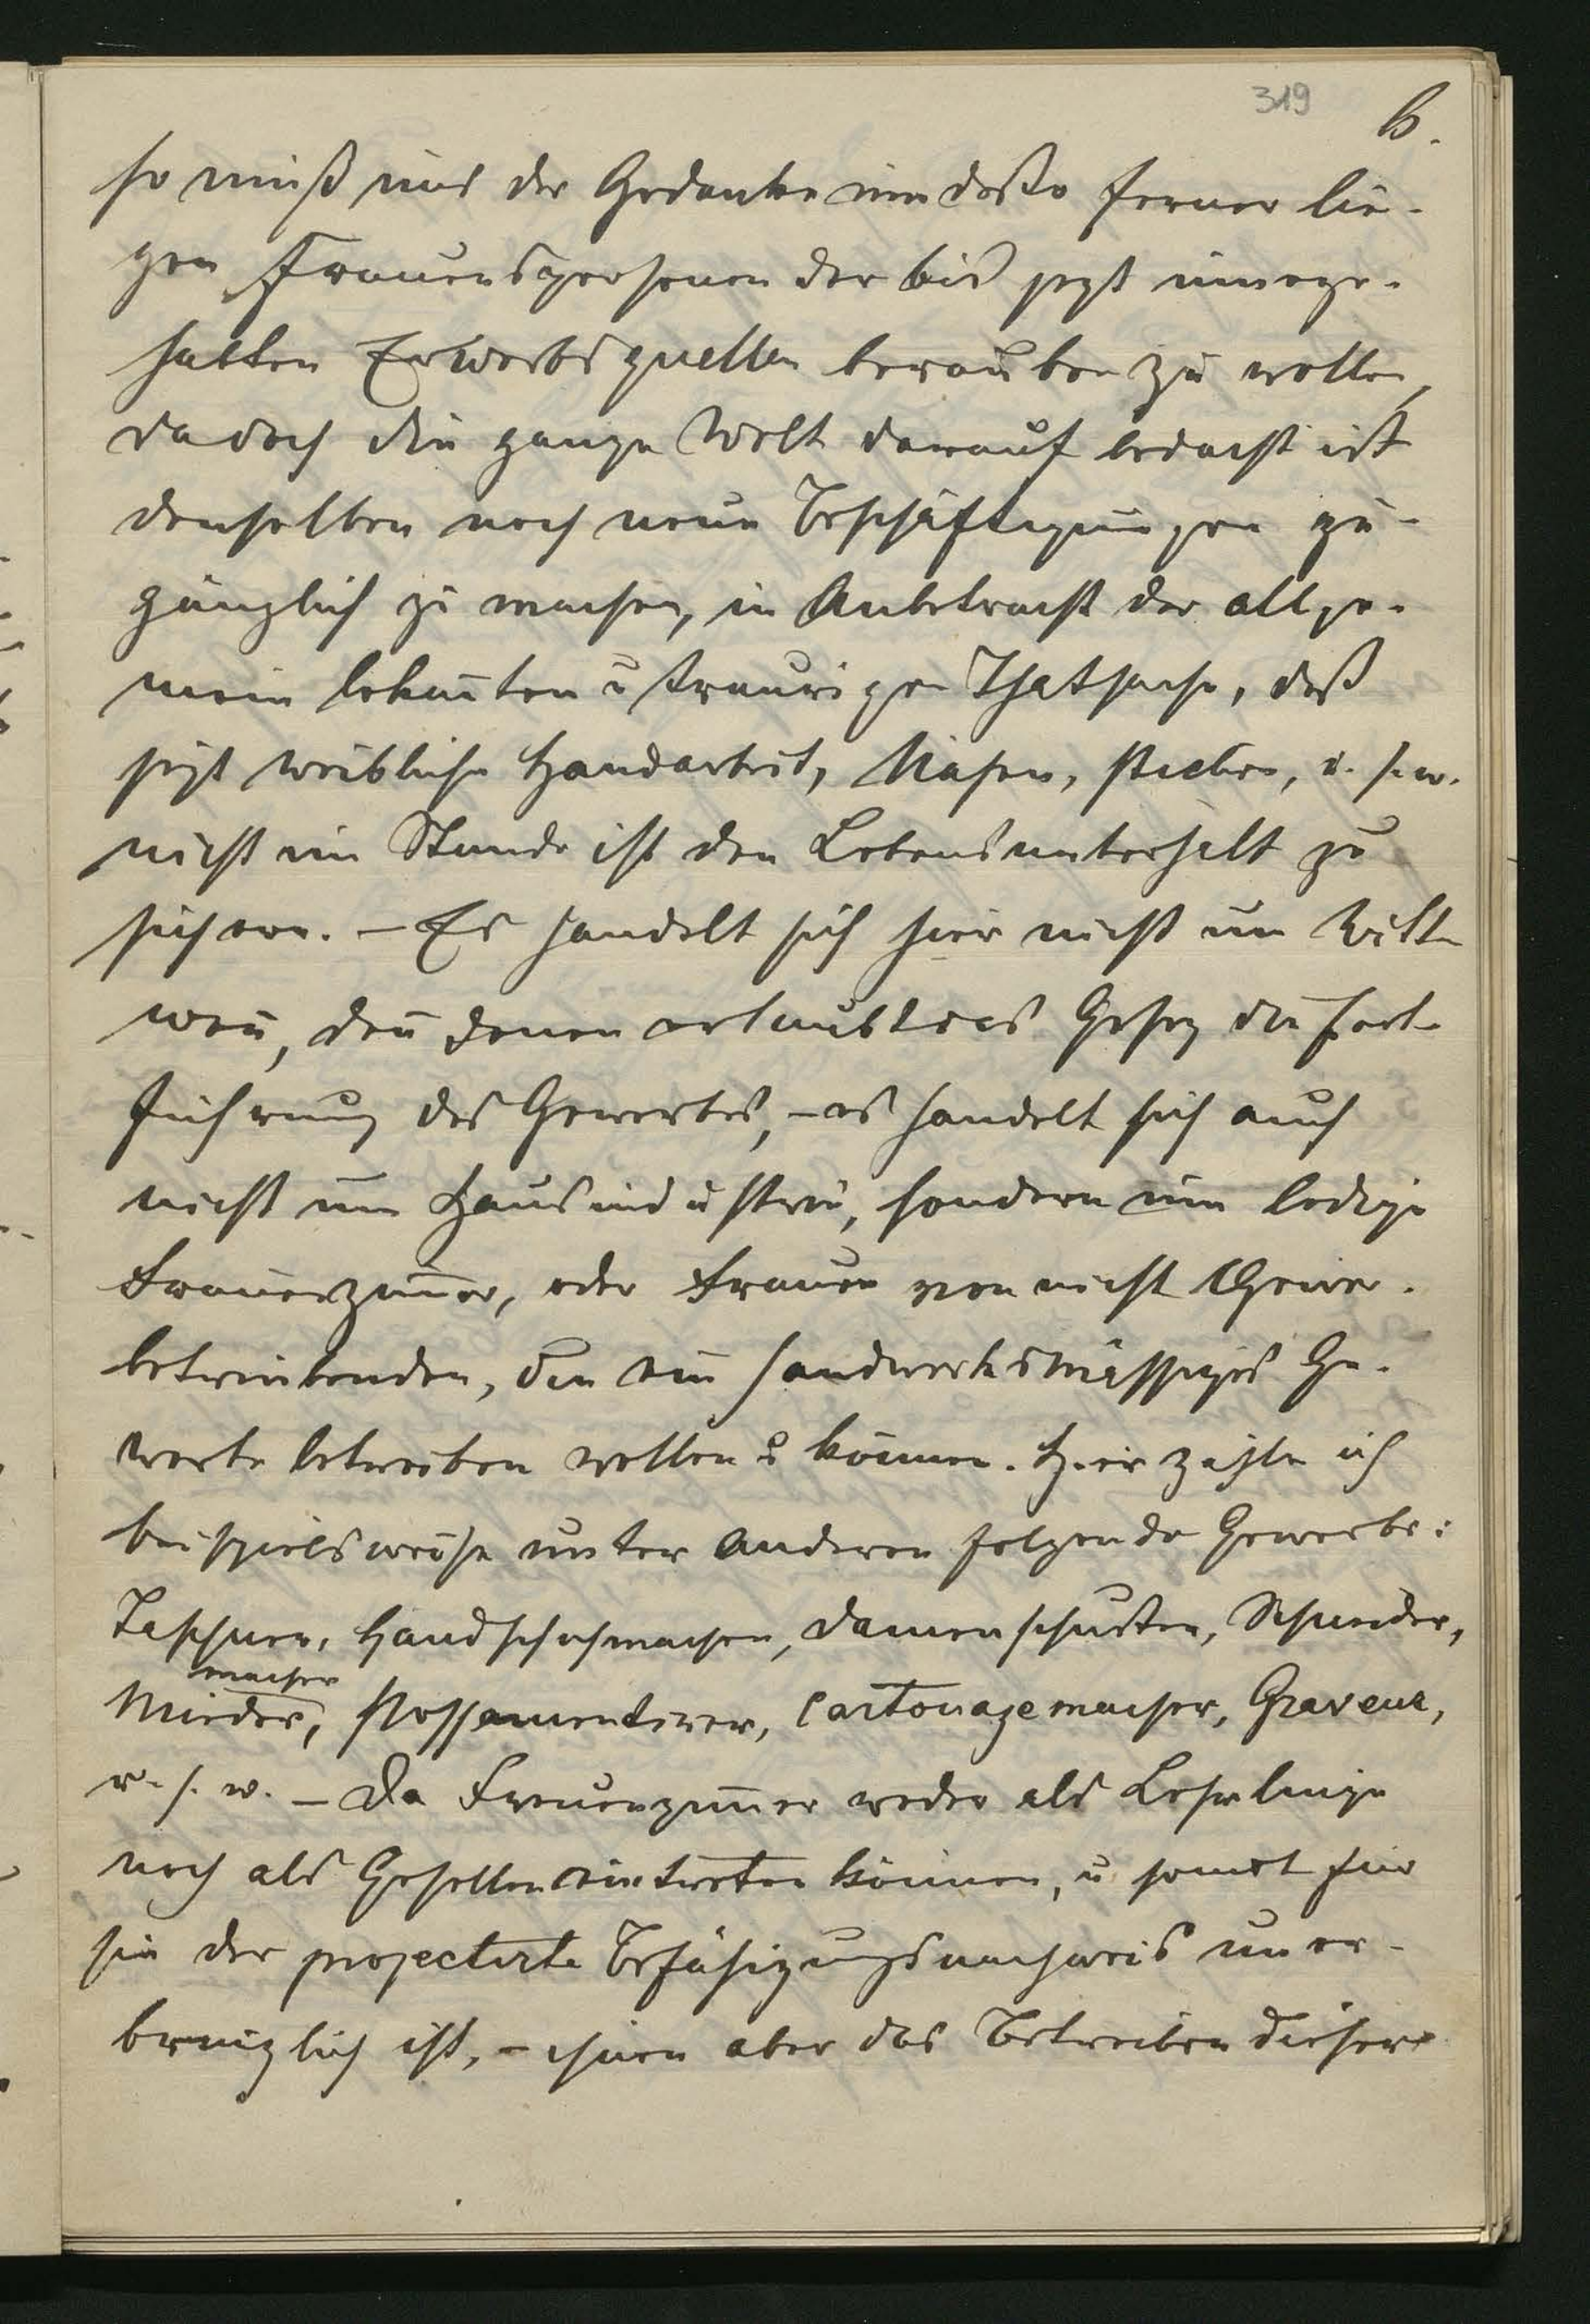 319
6.
so muß uns der Gedanke um desto ferner lie-
gen Frauenspersonen der bis jezt innege-
habten Erwerbsquellen berauben zu wollen,
da doch die ganze Welt darauf bedacht ist
denselben noch neue Beschäftigungen zu-
gänglich zu machen, in Anbetracht der allge-
mein bekan̄ten u traurigen Thatsache, daß
jezt weibliche Handarbeit, Nähen, sticken, u. s. w.
nicht im Stande ist den Lebensunterhalt zu
sichern. – Es handelt sich hier nicht um Witt-
wen, den̄ denen erlaubt das Gesez die Fort-
führung des Gewerbes, – es handelt sich auch
nicht um Hausindustrie, sondern um ledige
Frauenzim̄er, oder Frauen von nicht Gewer-
betreibenden, die ein handwerksmässiges Ge-
werbe betreiben wollen u können. Hier zähle ich
beispielsweise unter Anderen folgende Gewerbe:
Taschner, Handschuhmacher, Damenschuster, Schneider,
macher
Mieder, Possamentirer, Cartonagemacher, Graveur,
u. s. w. – Da Frauenzim̄er weder als Lehrlinge
noch als Gesellen eintreten können, u somit für
sie der projectirte Befähigungsnachweis uner-
bringlich ist, – ihnen aber das Betreiben dieser